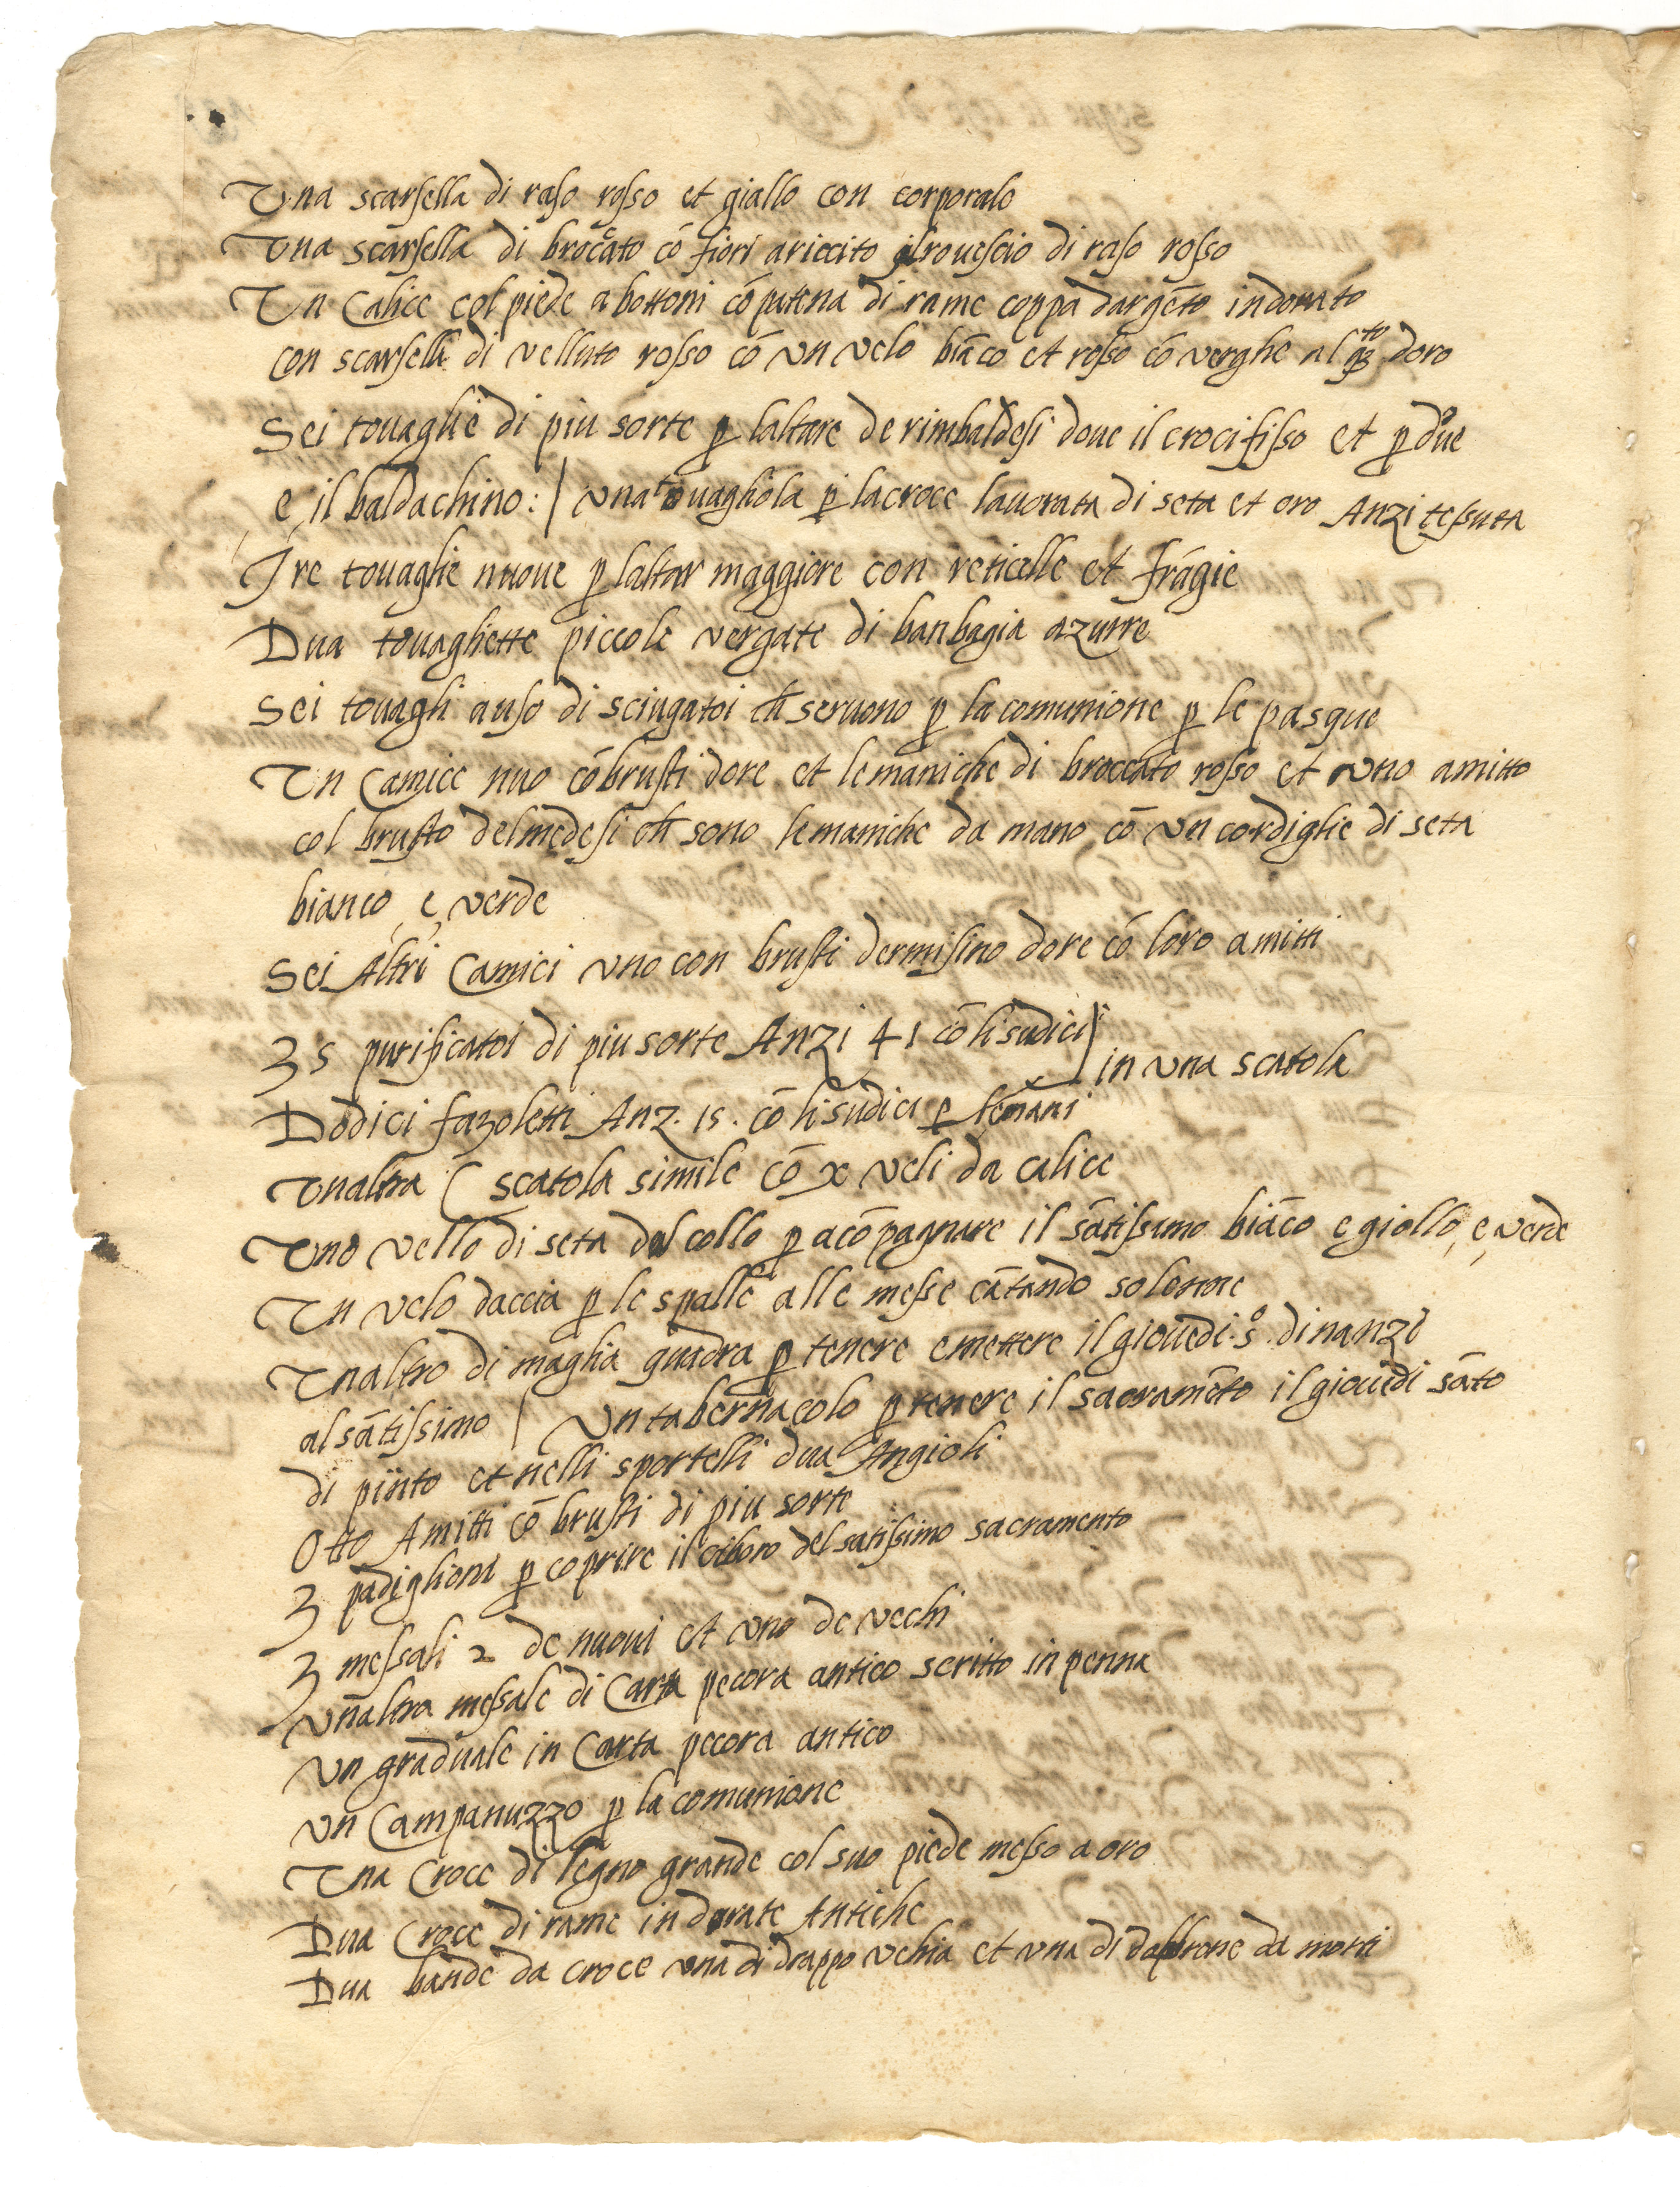 Una scarsella di raso rosso et giallo con corporalo
Una scarsella di brocato cō fiori ariccito il rovescio di raso rosso
Un Calice col piede a bottoni cō patena di rame coppa dargēto indorato
con scarsella di velluto rosso cō un velo biāco et rosso cō verghe doro
Sei tovaglie di piu sorte p laltare de rimbaldesi dove il crocifisso et p dve
e il baldachino: / una tovaghola p la croce lavorata di seta et oro Anzi tessuta
Tre tovaglie nuove p laltar maggiore con reticelle et frāgie
Dua tovagliette piccole vergate di banbagia azurre
Sei tovagli auso di sciugatoi ch servono p la comunione p le pasque
Un Camice nuo cō brusti dore et le maniche di broccato rosso et uno amitto
col brusto del medesi ch sono le maniche da mano cō un cordiglie di seta
bianco e verde
Sei Altri Camici uno con brusti dermisino dore cō loro amitti
35 purificatoi di piu sorte Anzi 41 cō li sudici
in una scatola
Dodici fazoletti Anz. 15. cō li sudici p le mani
Unaltra ( scatola simile cō x veli da calice
Uno vello di seta dal collo p acōpagnare il sātissimo biāco e giollo, e, verde
Un velo daccia p le spalle alle messe cātando solenne
Unaltro di maglia quadra p tenere e mettere il giovedi .sº. dinanzi
al sātissimo / Un tabernacolo p tenere il sacramēto il giovedi sāto
di pinto et nelli sportelli dua Angioli
Otto Amitti cō brusti di piu sorte
3 padiglioni p coprire il ciboro del satissimo sacramento
3 messali 2 de nuovi et uno de vechi
unaltra messale di Carta pecora antico scritto in penna
un graduale in Carta pecora antico
un Campanuzzo p la comunione
Una Croce di legno grande col suo piede messo a oro
Dua Croce di rame in dorate Antiche
Dua bande da croce una di drappo vehia et una di da morti